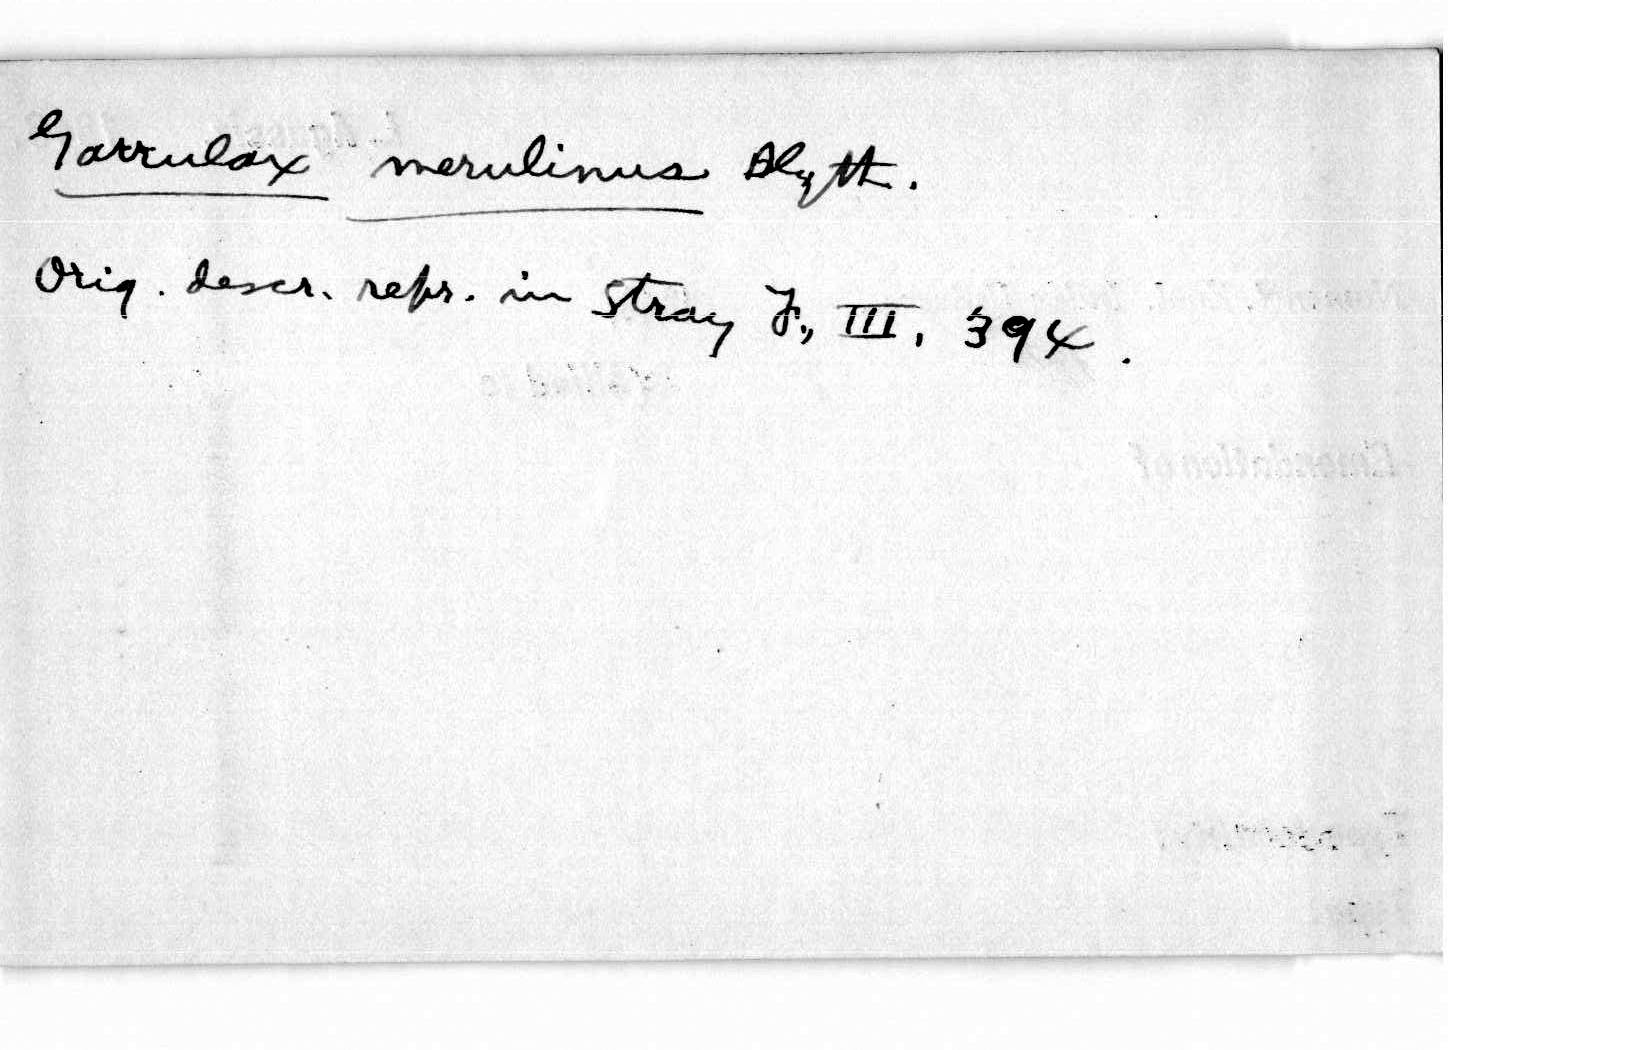 Garrulax merulinus Blyth.
Orig. descr. repr. in Stray F., III, 394.